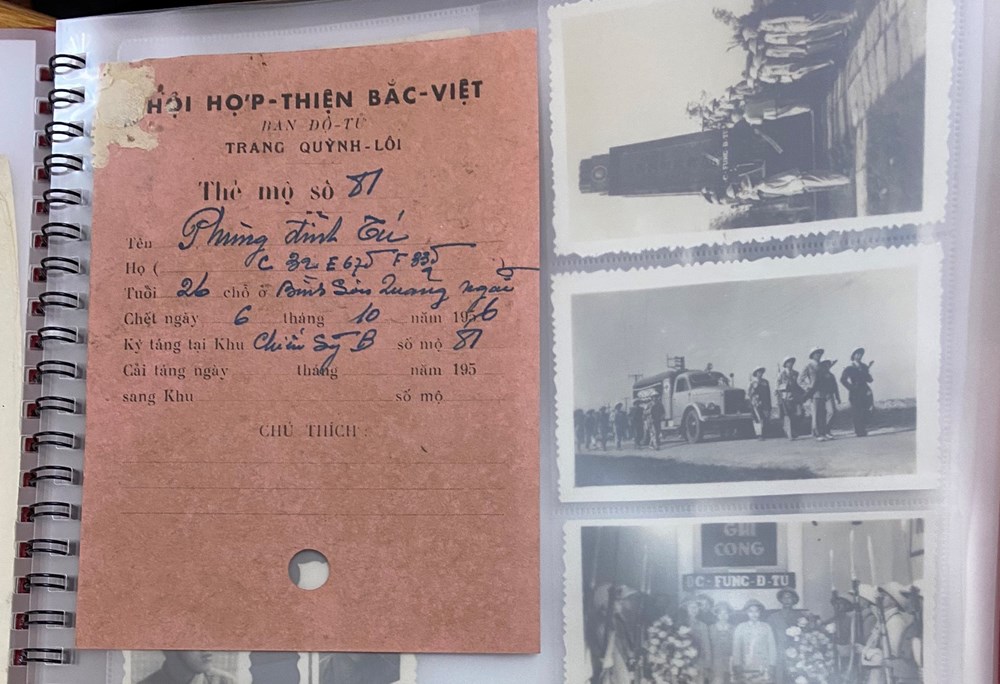 HỘI HỢP-THIỆN BẮC-VIỆT
BAN ĐÔ-TÙ
TRANG QUỲNH-LÔI
Thẻ mộ số 81
Tên Phùng đình Tú
Họ ( C 32 E 675 F 335
Tuổi 26 chỗ ở Bình Sơn Quảng ngãi
Chết ngày 6 tháng 10 năm 1956
Ký táng tại Khu Chiến Sỹ B số mộ 81
Cải táng ngày tháng năm 195
sang Khu số mộ
CHÚ THÍCH :
GHI
CONG
ĐC-FUNG-Đ-TU